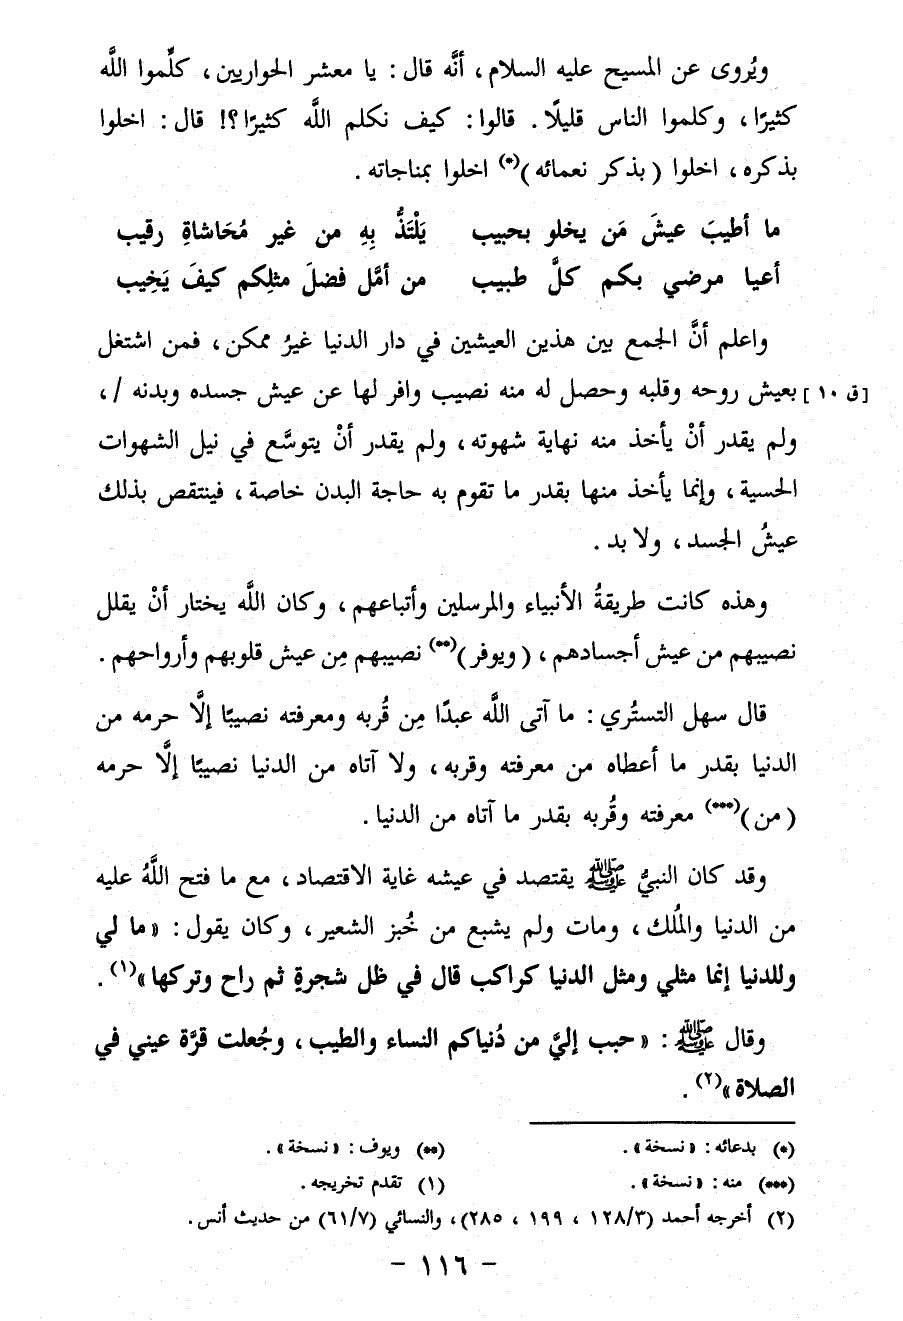 ويُروى عن المسيح عليه السلام، أنَّه قال: يا معشر الحواريين، كلِّموا اللَّه
كثيرًا، وكلموا الناس قليلًا. قالوا: كيف نكلم اللَّه كثيرًا؟! قال: اخلوا
بذكره، اخلوا (بذكر نعمائه)(*) اخلوا بمناجاته.
ما أطيبَ عيشَ مَن يخلو بحبيب يَلْتَذُّ بِهِ من غير مُحَاشاةِ رقيب
أعيا مرضي بكم كلَّ طبيب من أمَّل فضلَ مثلِكم كيفَ يَخِيب
واعلم أنَّ الجمع بين هذين العيشين في دار الدنيا غيرُ ممكن، فمن اشتغل
[ق ١٠] بعيش روحه وقلبه وحصل له منه نصيب وافر لها عن عيش جسده وبدنه /،
ولم يقدر أنْ يأخذ منه نهاية شهوته، ولم يقدر أنْ يتوسَّع في نيل الشهوات
الحسية، وإنما يأخذ منها بقدر ما تقوم به حاجة البدن خاصة، فينتقص بذلك
عيشُ الجسد، ولا بد.
وهذه كانت طريقةُ الأنبياء والمرسلين وأتباعهم، وكان اللَّه يختار أنْ يقلل
نصيبهم من عيش أجسادهم، (ويوفر)(**) نصيبهم مِن عيش قلوبهم وأرواحهم.
قال سهل التستُري: ما آتى اللَّه عبدًا مِن قُربه ومعرفته نصيبًا إلَّا حرمه من
الدنيا بقدر ما أعطاه من معرفته وقربه، ولا آتاه من الدنيا نصيبًا إلَّا حرمه
(من)(***) معرفته وقُربه بقدر ما آتاه من الدنيا.
وقد كان النبيُّ ﷺ يقتصد في عيشه غاية الاقتصاد، مع ما فتح اللَّهُ عليه
من الدنيا والمُلك، ومات ولم يشبع من خُبز الشعير، وكان يقول: «ما لي
وللدنيا إنما مثلي ومثل الدنيا كراكب قال في ظل شجرةٍ ثم راح وتركها»(١).
وقال ﷺ: «حبب إليَّ من دُنياكم النساء والطيب، وجُعلت قرَّة عيني في
الصلاة»(٢).
(*) بدعائه: «نسخة». (**) ويوف: «نسخة».
(***) منه: «نسخة». (١) تقدم تخريجه.
(٢) أخرجه أحمد (١٢٨/٣ ، ١٩٩ ، ٢٨٥)، والنسائي (٦١/٧) من حديث أنس.
- ١١٦ -